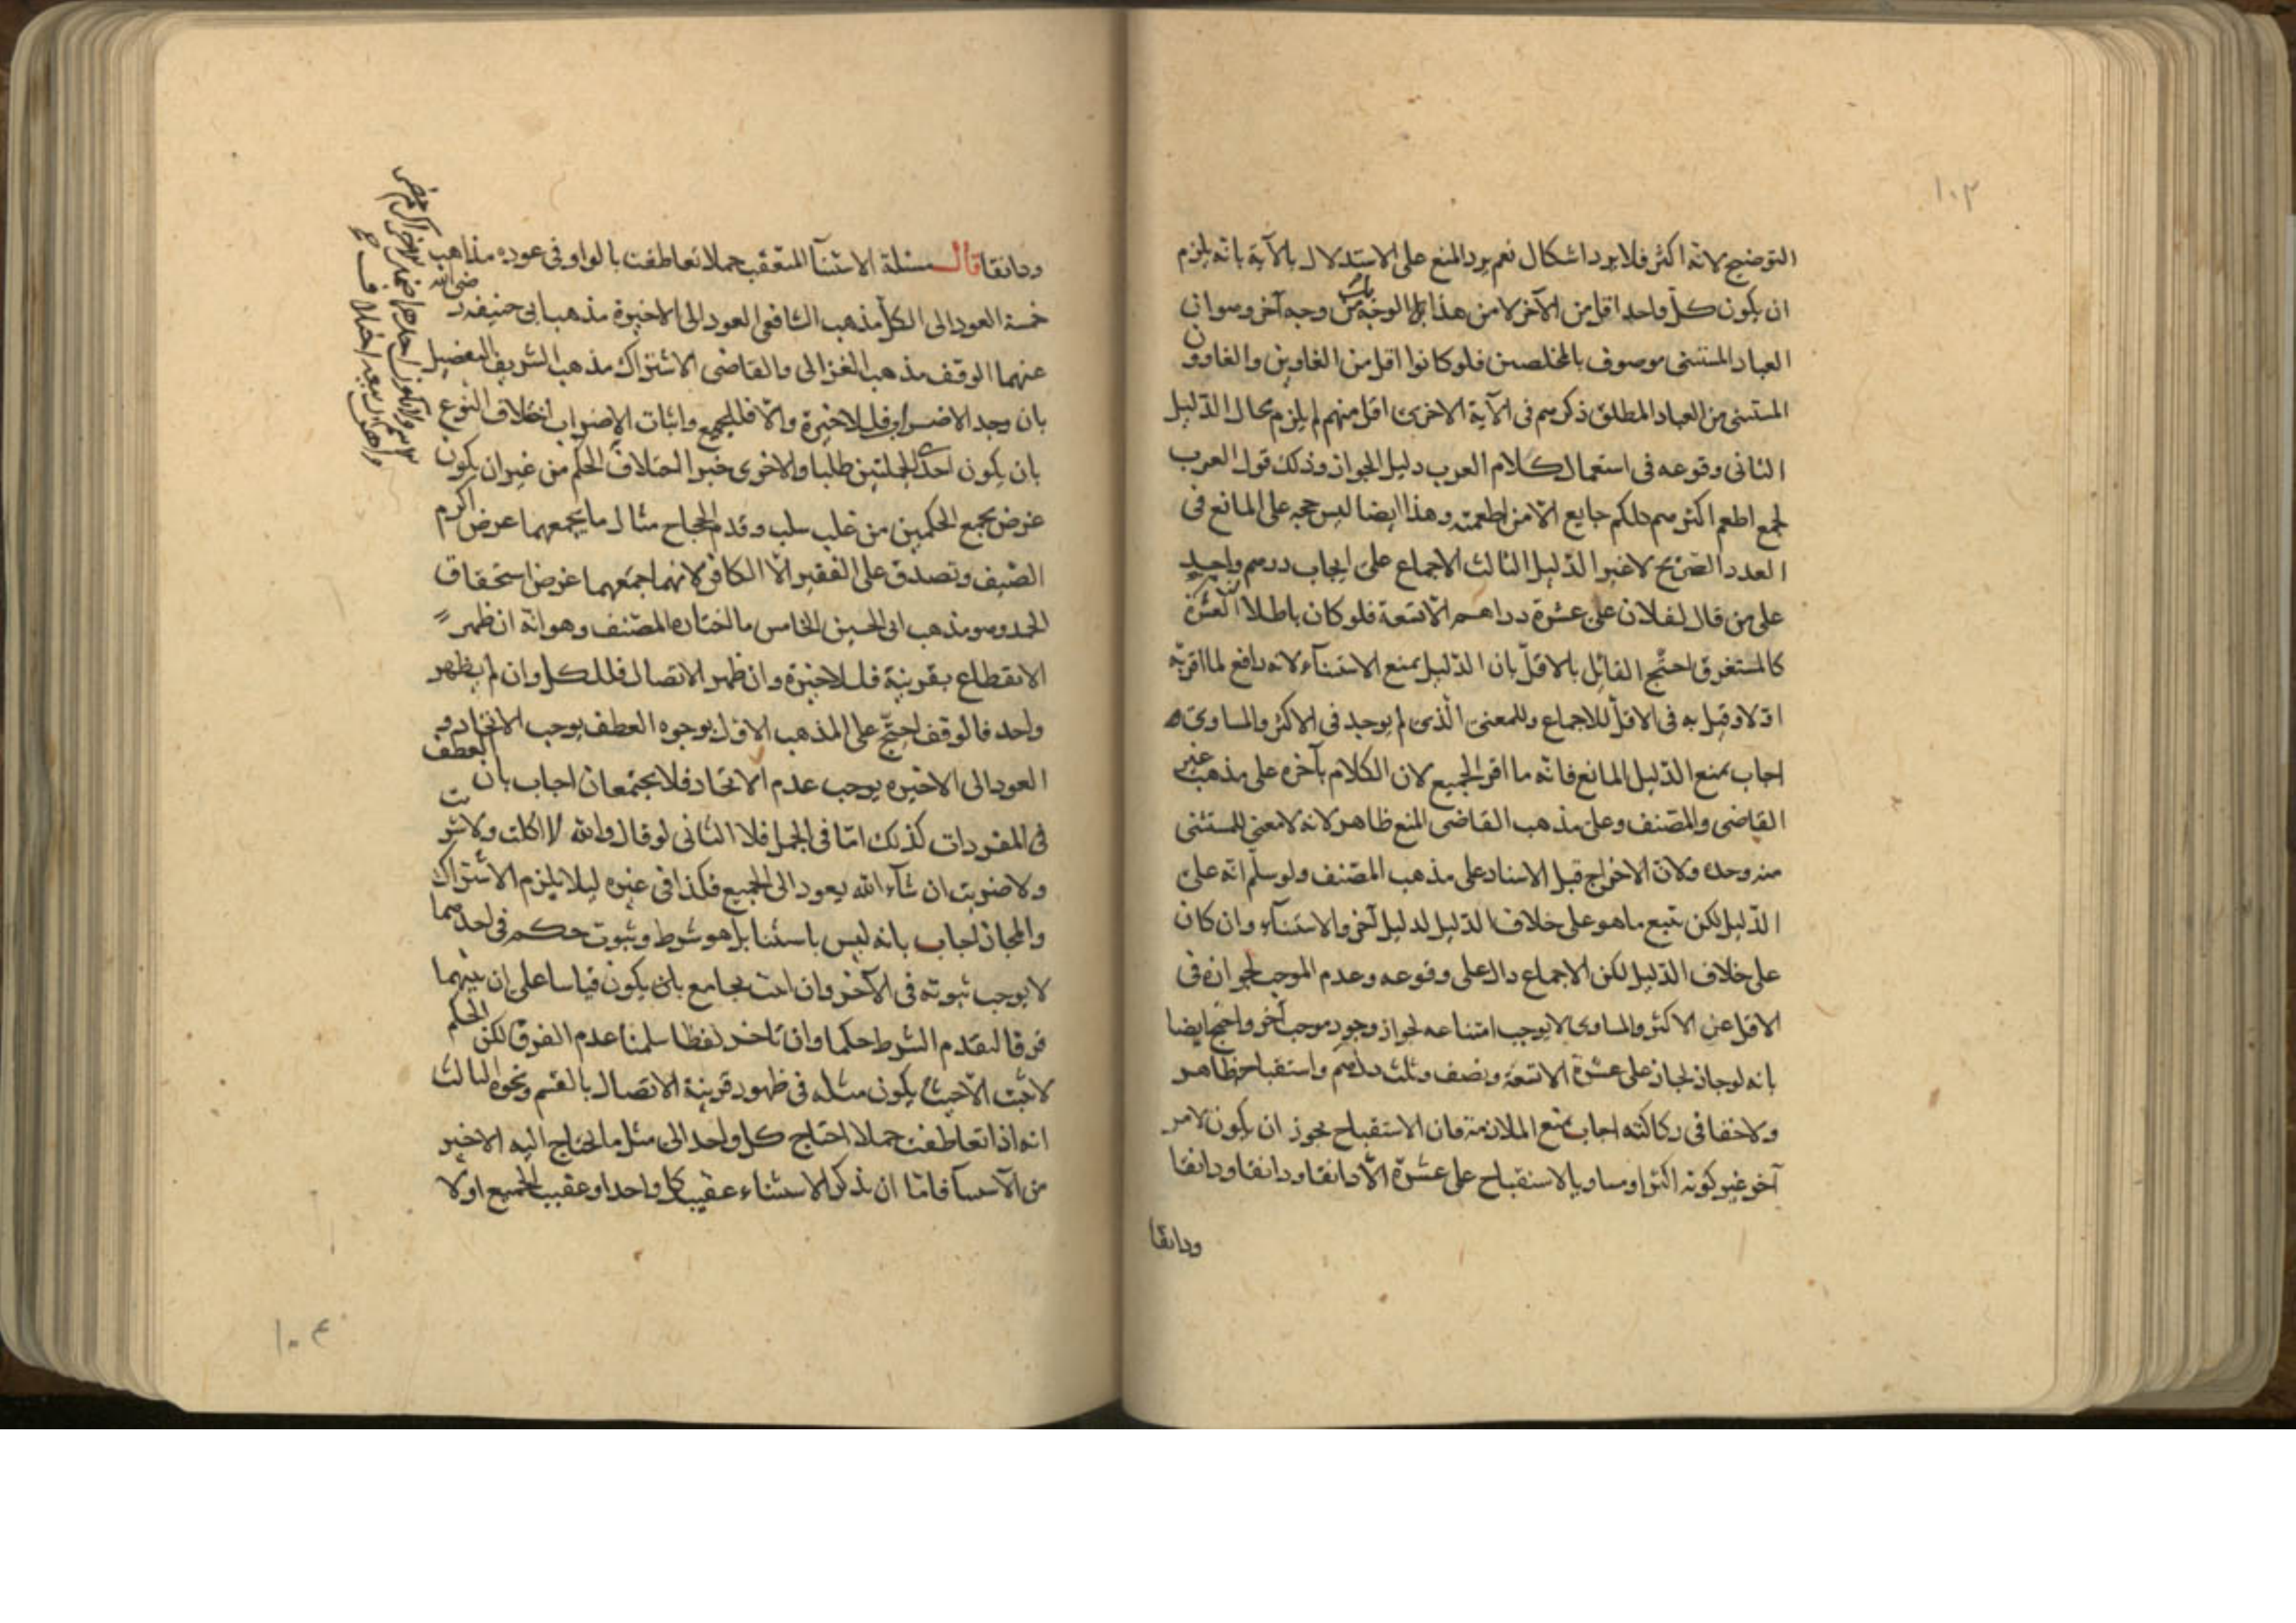 ١٠٣
التوضيح لانه اكثر فلا يرد اشكال نعم يرد المنع على الاستدلال بالآية بانه يلزم
ان يكون كل واحد اقل من الآخر لا من هذا الوجه بل من وجه آخر وهو ان
العباد المستثنى موصوف بالمخلصين فلو كانوا اقل من الغاوين والغاوون
المستثنى من العباد المطلق ذكرهم فى الآية الاخرى اقل منهم لم يلزم محال الدليل
الثانى وقوعه فى استعمال كلام العرب دليل الجواز وذلك قول العرب
لجمع اطعم اكثرهم كلكم جايع الا من اطعمته وهذا ايضا ليس حجة على المانع فى
العدد الصريح لا غير الدليل الثالث الاجماع على ايجاب درهم واحد
على من قال لفلان على عشرة دراهم الا تسعة فلو كان باطلا لزم العشرة
كالمستغرق احتج القائل بالاقل بان الدليل يمنع الاستثناء لانه دافع لما اقر به
اولا وقيل به فى الاقل للاجماع وللمعنى الذى لم يوجد فى الاكثر والمساوى
اجاب بمنع الدليل المانع فانه ما اقر الجميع لان الكلام بآخره على مذهب غير
القاضى والمصنف وعلى مذهب القاضى المنع ظاهر لانه لا معنى للمستثنى
منه وحده ولان الاخراج قبل الاسناد على مذهب المصنف ولو سلم انه على
الدليل لكن تتبع ما هو على خلاف الدليل لدليل آخر والاستثناء وان كان
على خلاف الدليل لكن الاجماع دال على وقوعه وعدم الموجب لجوازه فى
الاقل عن الاكثر والمساوى لا يوجب امتناعه لجواز وجود موجب آخر واحتج ايضا
بانه لو جاز لجاز على عشرة الا تسعة ونصف وثلث درهم واستقباحه ظاهر
ولا خفا فى ركاكته اجاب بمنع الملازمة فان الاستقباح يجوز ان يكون لامر
آخر غير كونه اكثر او مساويا لاستقباح على عشرة الا دانقا ودانقا ودانقا
ودانقا
ودانقا قال مسئلة الاستثنآ المتعقب جملا تعاطفت بالواو فى عوده مذاهب
خمسة العود الى الكل مذهب الشافعى العود الى الاخيرة مذهب ابى حنيفه رضى الله
عنهما الوقف مذهب الغزالى والقاضى الاشتراك مذهب الشريف التفصيل
بان وجد الاضراب فللاخيرة والا فللجميع واثبات الاضراب اختلاف النوع
بان يكون احدى الجملتين طلبا والاخرى خبرا اختلاف الحكم من غير ان يكون
غرض يجمع الحكمين من غلب سلب وقدم الحجاح مثال ما يجمعهما غرض اكرم
الضيف وتصدق على الفقير الا الكافر لانهما اجمعهما غرض استحقاق
الحمد وهو مذهب ابى الحسين الخامس ما اختاره المصنف وهو انه ان ظهر
الانقطاع بقرينة فللاخيرة وان ظهر الاتصال فللكل وان لم يظهر
واحد فالوقف احتج على المذهب الاول بوجوه العطف يوجب الاتحاد و
العود الى الاخيره يوجب عدم الاتحاد فلا يجتمعان اجاب بان العطف
فى المفردات كذلك اما فى الجمل فلا الثانى لو قال والله لا اكلت ولا شربت
ولا ضربت ان شآء الله يعود الى الجميع فكذا فى غيره ليلا يلزم الاشتراك
والمجاز اجاب بانه ليس باستثنا بل هو شرط وثبوت حكم فى احدهما
لا يوجب ثبوته فى الآخر وان اتت بجامع بان يكون قياسا على ان بينهما
فرقا لتقدم الشرط حكما وان تاخر لفظا سلمنا عدم الفرق لكن الحكم
لا يثبت الا حيث يكون مثله فى ظهور قرينة الاتصال بالقسم ونحوه الثالث
انه اذا تعاطفت جملا احتاج كل واحد الى مثل ما احتاج اليه الاخير
من الاستثنآ فاما ان يذكر الاستثناء عقيب كل واحد او عقيب الجميع اولا
١٠٤